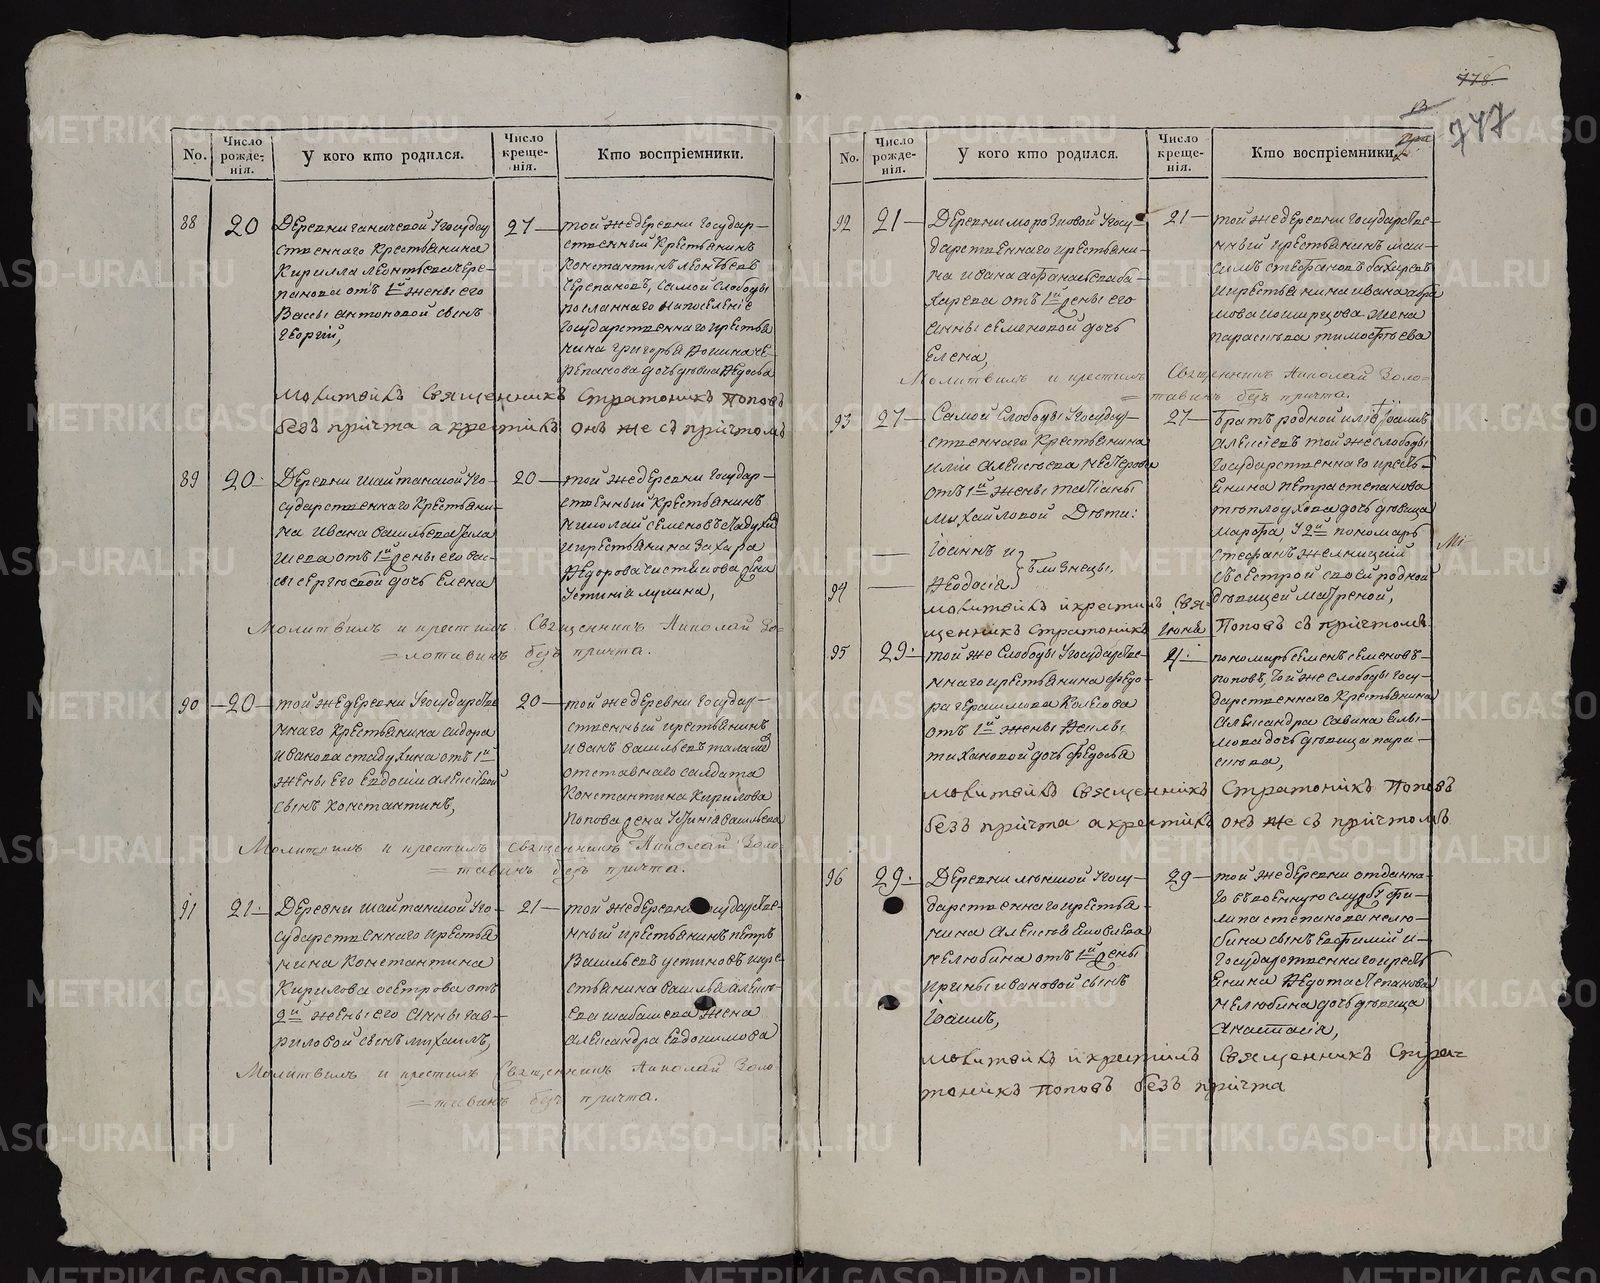 No.
Число рожде-нія.
У кого кто родился.
Число креще-нія.
Кто воспріемники.
88
20
Деревни ганичевой У государ
ственнаго Крестьянина
Кирилла леонтьева чере-
панова отъ 1й жены его
Вассы антоновой сынъ
Георгій,
27
той же деревни государ-
ственный крестьянинъ
Константинъ леонтьевъ
черепановъ, самой слободы
посланнаго на поселеніе
государственнаго крестья
нина григорья
репанова дочь девица Федосья
молитвилъ священникъ Стратоникъ Поповъ
безъ причта а крестилъ онъ же съ причтомъ
89
20
Деревни шайтанской У го-
сударственнаго Крестьяни-
на ивана васильева
шева отъ 1й жены его вас-
сы сергіевой дочь Елена
20
той же деревни государ-
ственный крестьянинъ
николай семеновъ
и крестьянина захара
Федорова чистякова жена
Устинія лукина,
Молитвилъ и крестилъ Священникъ Николай Зо-
=лотавинъ безъ причта.
90
20
той же деревни У государстве
ннаго Крестьянина сидора
Иванова стадухина отъ 1й
жены его Евдокіи алексіевой
сынъ константинъ,
20
той же деревни государ-
ственный крестьянинъ
иванъ васильевъ
отставнаго солдата
Константина кирилова
Попова жена Устинія васильева
Молитвилъ и крестилъ священникъ Николай Золо-
=тавинъ безъ причта.
91
21
Деревни шайтанской У го-
сударственнаго крестья
нина константина
Кирилова осетрова отъ
2й жены его Анны гав-
риловой сынъ михаилъ,
21
той же деревни государстве-
нный крестьянинъ петръ
Васильевъ устиновъ и кре-
стьянина василья алек
ева шабашева жена
александра Евдокимова
Молитвилъ и крестилъ Священникъ Николай Золо
=тавинъ безъ причта.
778.
747
No.
Число рожде-нія.
У кого кто родился.
Число креще-нія.
Кто воспріемники.
92
21
Деревни морозковой У госу-
дарственнаго крестьяни-
на ивана афанасьева ба-
харева отъ 1й жены его
анны семеновой дочь
Елена,
21
той же деревни государстве-
нный крестьянинъ мак-
симъ стефановъ бахаревъ
и крестьянина ивана абра
мова жена
параскева тимофеева
Молитвилъ и крестилъ Священникъ Николай Золо-
=тавинъ безъ причта.
93
27
Самой слободы У государ-
ственнаго Крестьянина
иліи алексеева
отъ 1й жены татіаны
михайловой Дети:
Іоаннъ и
94
Феодосія
близнецы,
27
братъ родной иліи Іоакимъ
алексіевъ той же слободы
государственнаго кресть-
янина петра степанова
теплоухова дочь девица
марфа, У 2й пономарь
стефанъ
съ сестрой своей родной
девицей матреной,
молитвилъ и крестилъ свя-
щенникъ Стратоникъ Поповъ съ причтомъ
95
29
той же слободы У государстве-
ннаго крестьянина федо-
ра герасимова
отъ 1й жены
тихановой дочь федосья
Іюня
2
пономарь семенъ семеновъ
поповъ, той же слободы госу-
дарственнаго Крестьянина
александра савина
мова дочь девица пара-
скева,
молитвилъ священникъ Стратоникъ Поповъ
безъ причта а крестилъ онъ же съ причтомъ
96
29
Деревни У госу-
дарственнаго крестья-
нина алексея
нелюбина отъ 1й жены
ирины ивановой сынъ
Іоакимъ,
29
той же деревни отданна-
го въ военную службу фи-
липа степанова нелю-
бина сынъ евфимій и
государственнаго кресть
янина Федота степанова
нелюбина дочь девица
Анастасія,
молитвилъ и крестилъ священникъ Страт-
тоникъ Поповъ безъ причта
METRIKI.GASO-URAL.RU